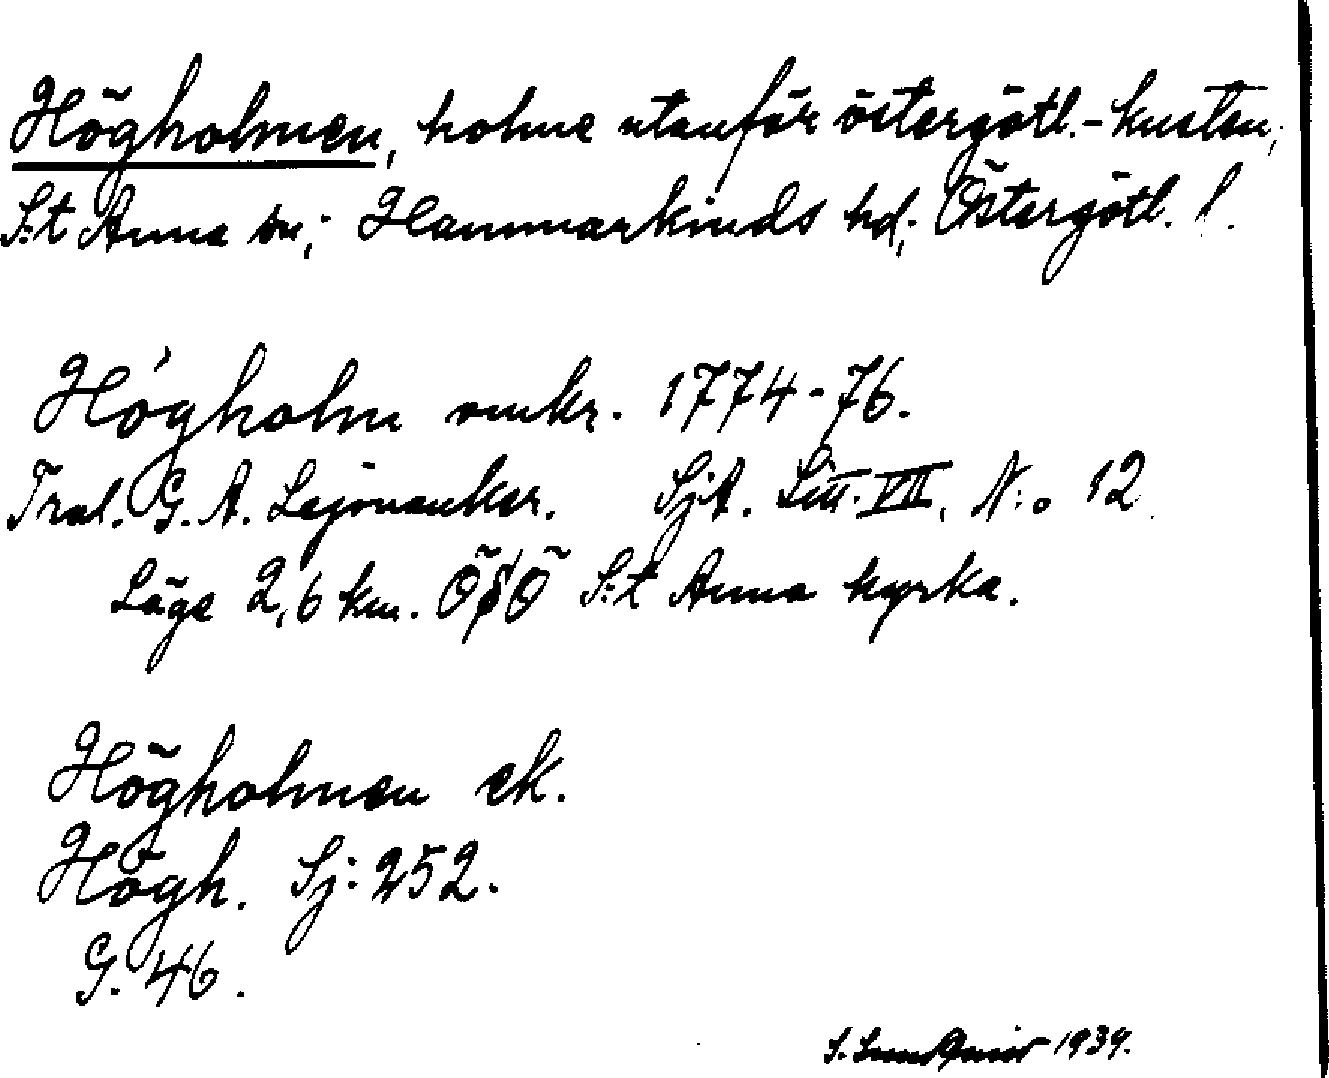 Högholmen, holme utanför östergötl.-kusten,
S:t Anna sn; Hammarkinds hd; Östergötl. l.
Högholm omkr. 1774-76.
Tral. G. A. Lejonanker. SjA. Litt. VII. N:o 12
Läge 2,6 km. ÖSÖ S:t Anna kyrka.
Högholmen ek.
Högh. Sj: 252.
G. 46.
S. Lundquist 1939.